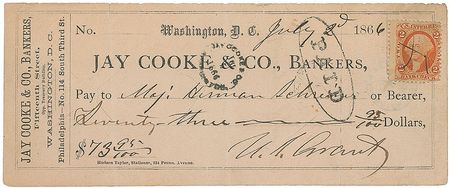 JAY COOKE & CO., BANKERS,
Fifteenth Street,
WASHINGTON, D. C.
Philadelphia—No. 114 South Third St.
No. Washington, D. C. July 2d 1866
JAY COOKE & CO., BANKERS,
PAID
JAY COOKE & CO.
Pay to Maj. Herman Schreiner or Bearer,
Seventy-three 95/100 Dollars,
$73 95/100 U. S. Grant
Hudson Taylor, Stationer, 334 Penna. Avenue.